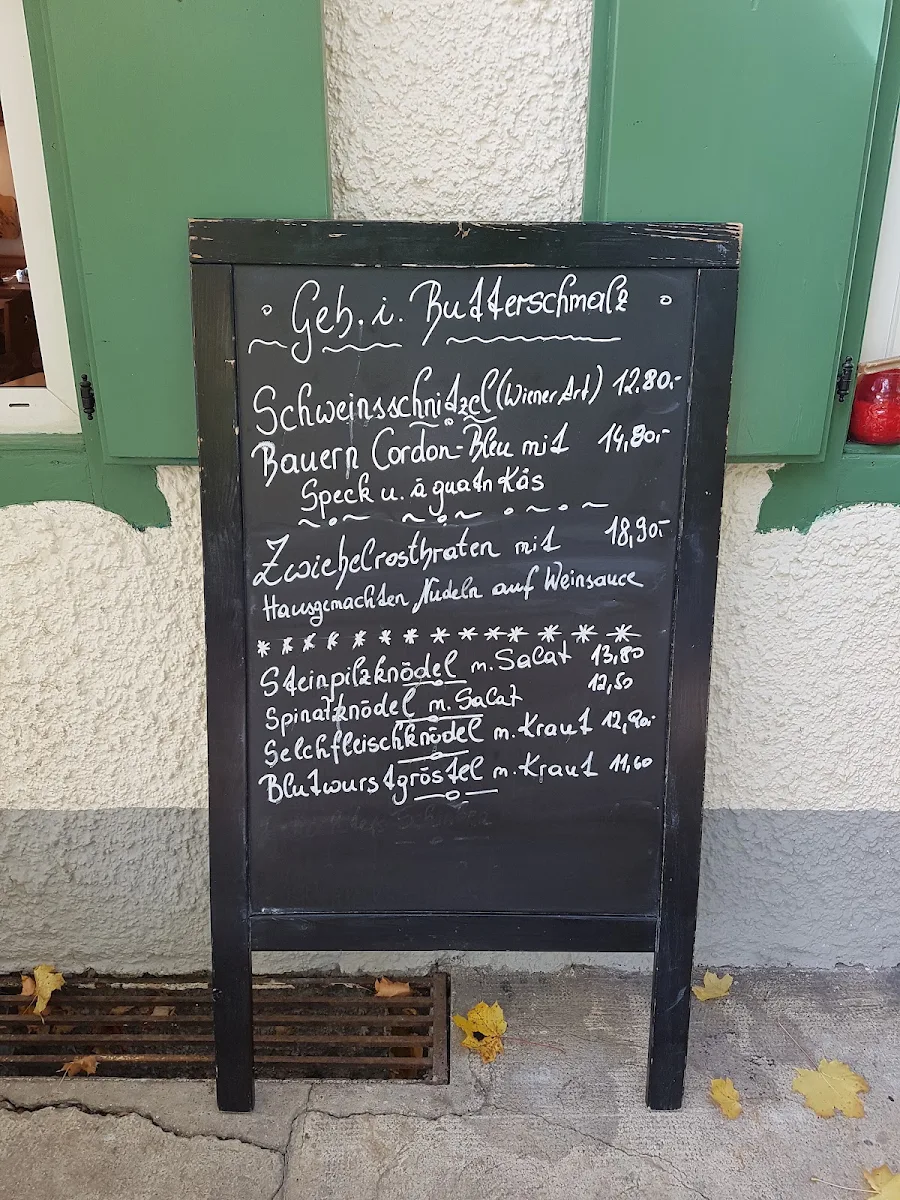 Geb. i. Butterschmalz
Schweinsschnitzel (Wiener Art) 12.80.-
Bauern Cordon-Bleu mit 14,80.-
Speck u. a guatn Kås
Zwiebelrostbraten mit 18,90.-
Hausgemachten Nudeln auf Weinsauce
Steinpilzknödel m. Salat 13,80
Spinatknödel m. Salat 12,50
Selchfleischknödel m. Kraut
Blutwurstgröstel m. Kraut 11,60